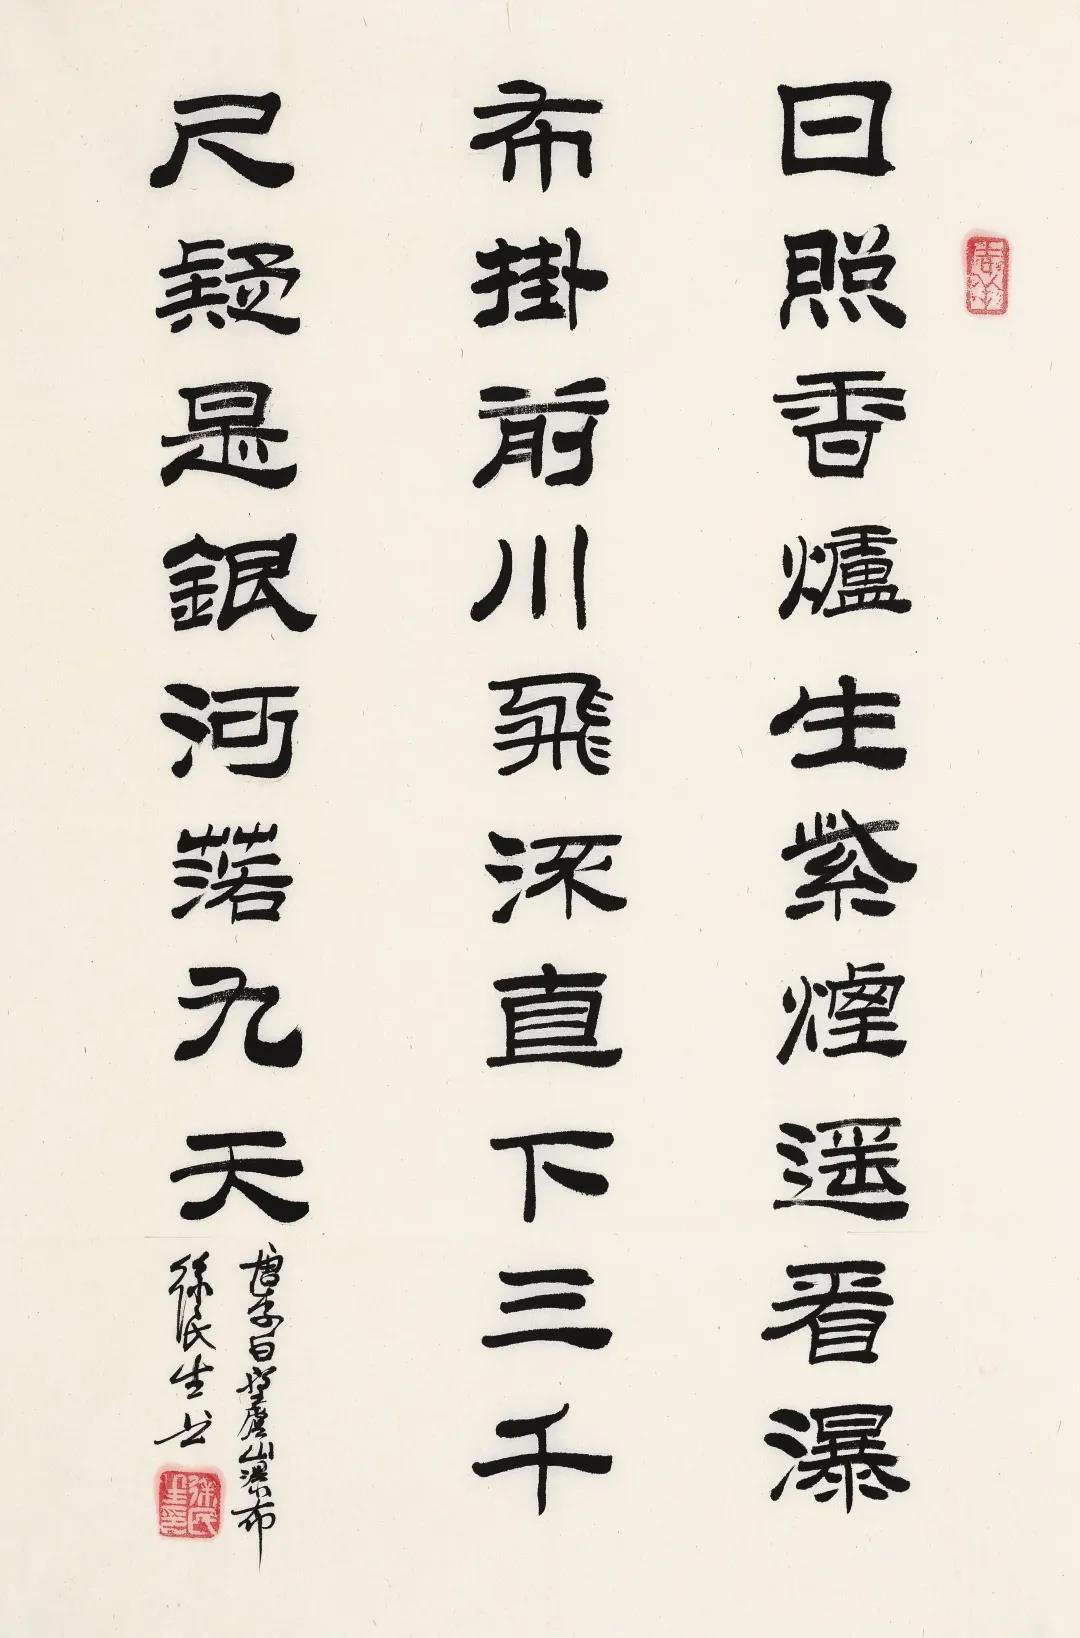 日照香爐生紫煙遥看瀑
布掛前川飛流直下三千
尺疑是銀河落九天
唐李白望廬山瀑布
徐氏生书
徐氏生印